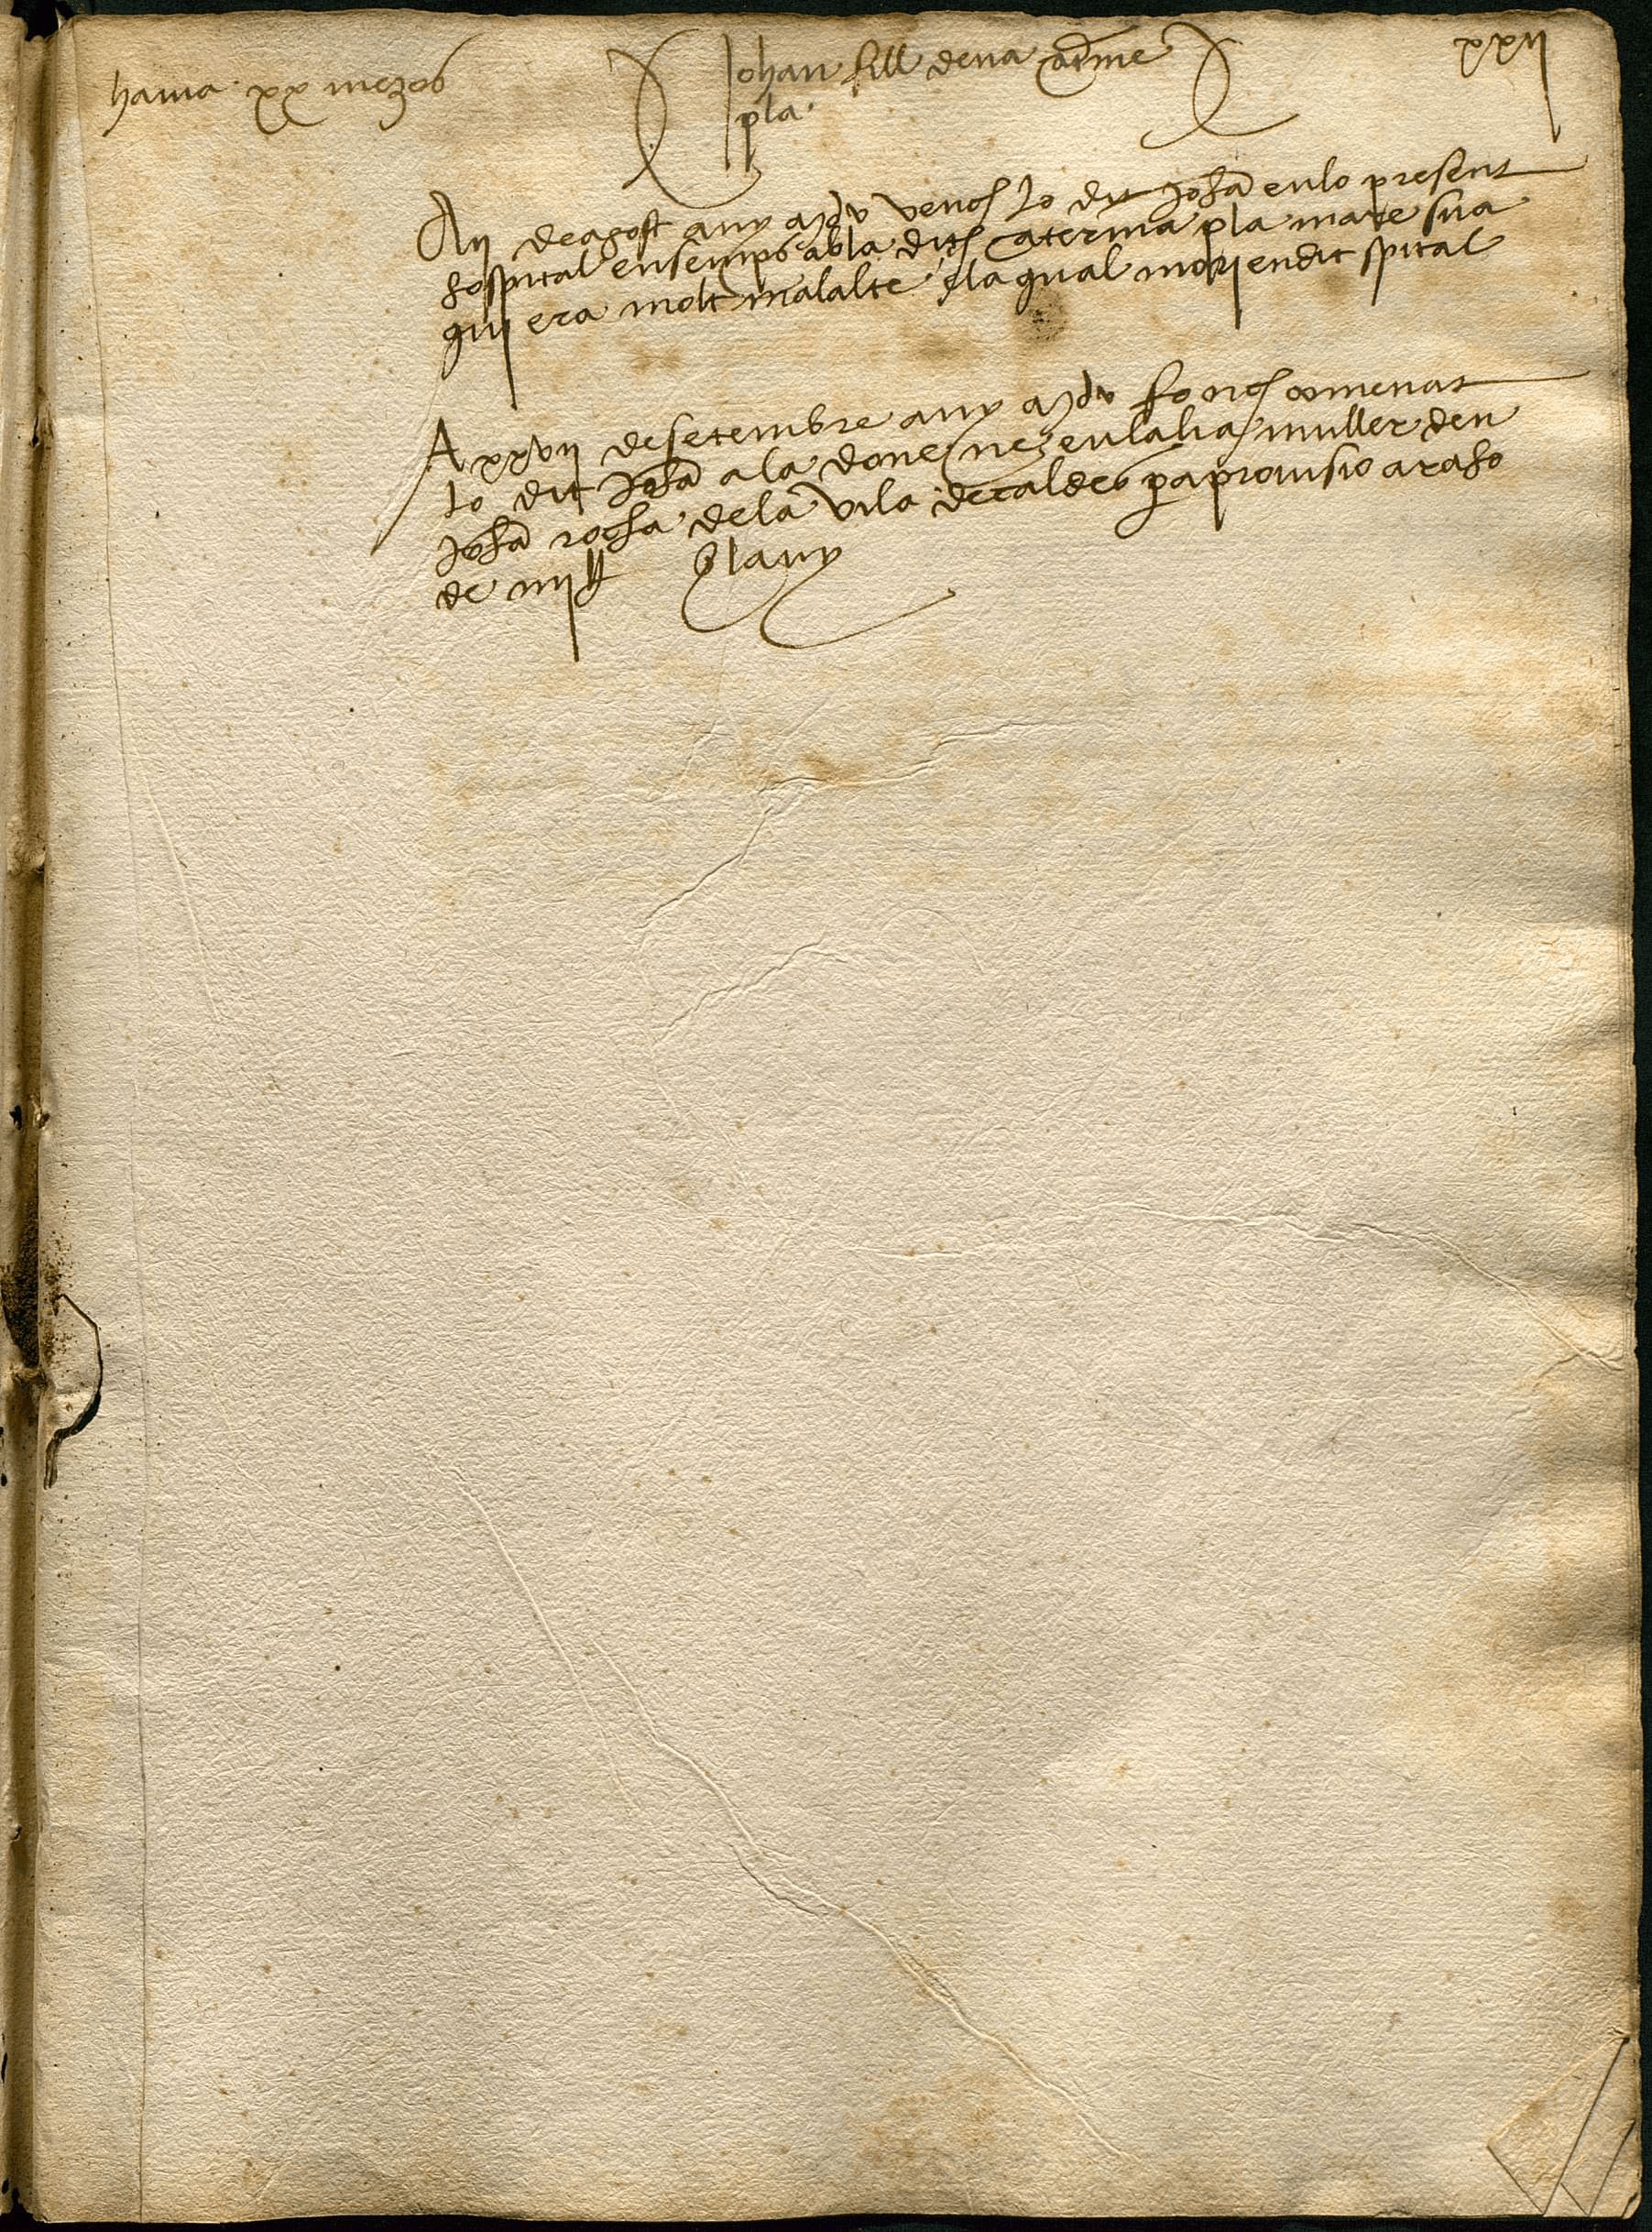 havia xx mezos
Johan fill dena
pla
xxii
A ii de agost any mdv vench lo dit Johã en lo present
hospital ensemps ab la dita Caterina pla mare sua
qui era molt malalte e la qual mori en dit spital
A xxvii de setembre any mdv fonch comenat
lo dit Johã a la done ne eulalia muller den
Johã rocha de la vila de caldes per a provisio a raho
de iiii ll lany